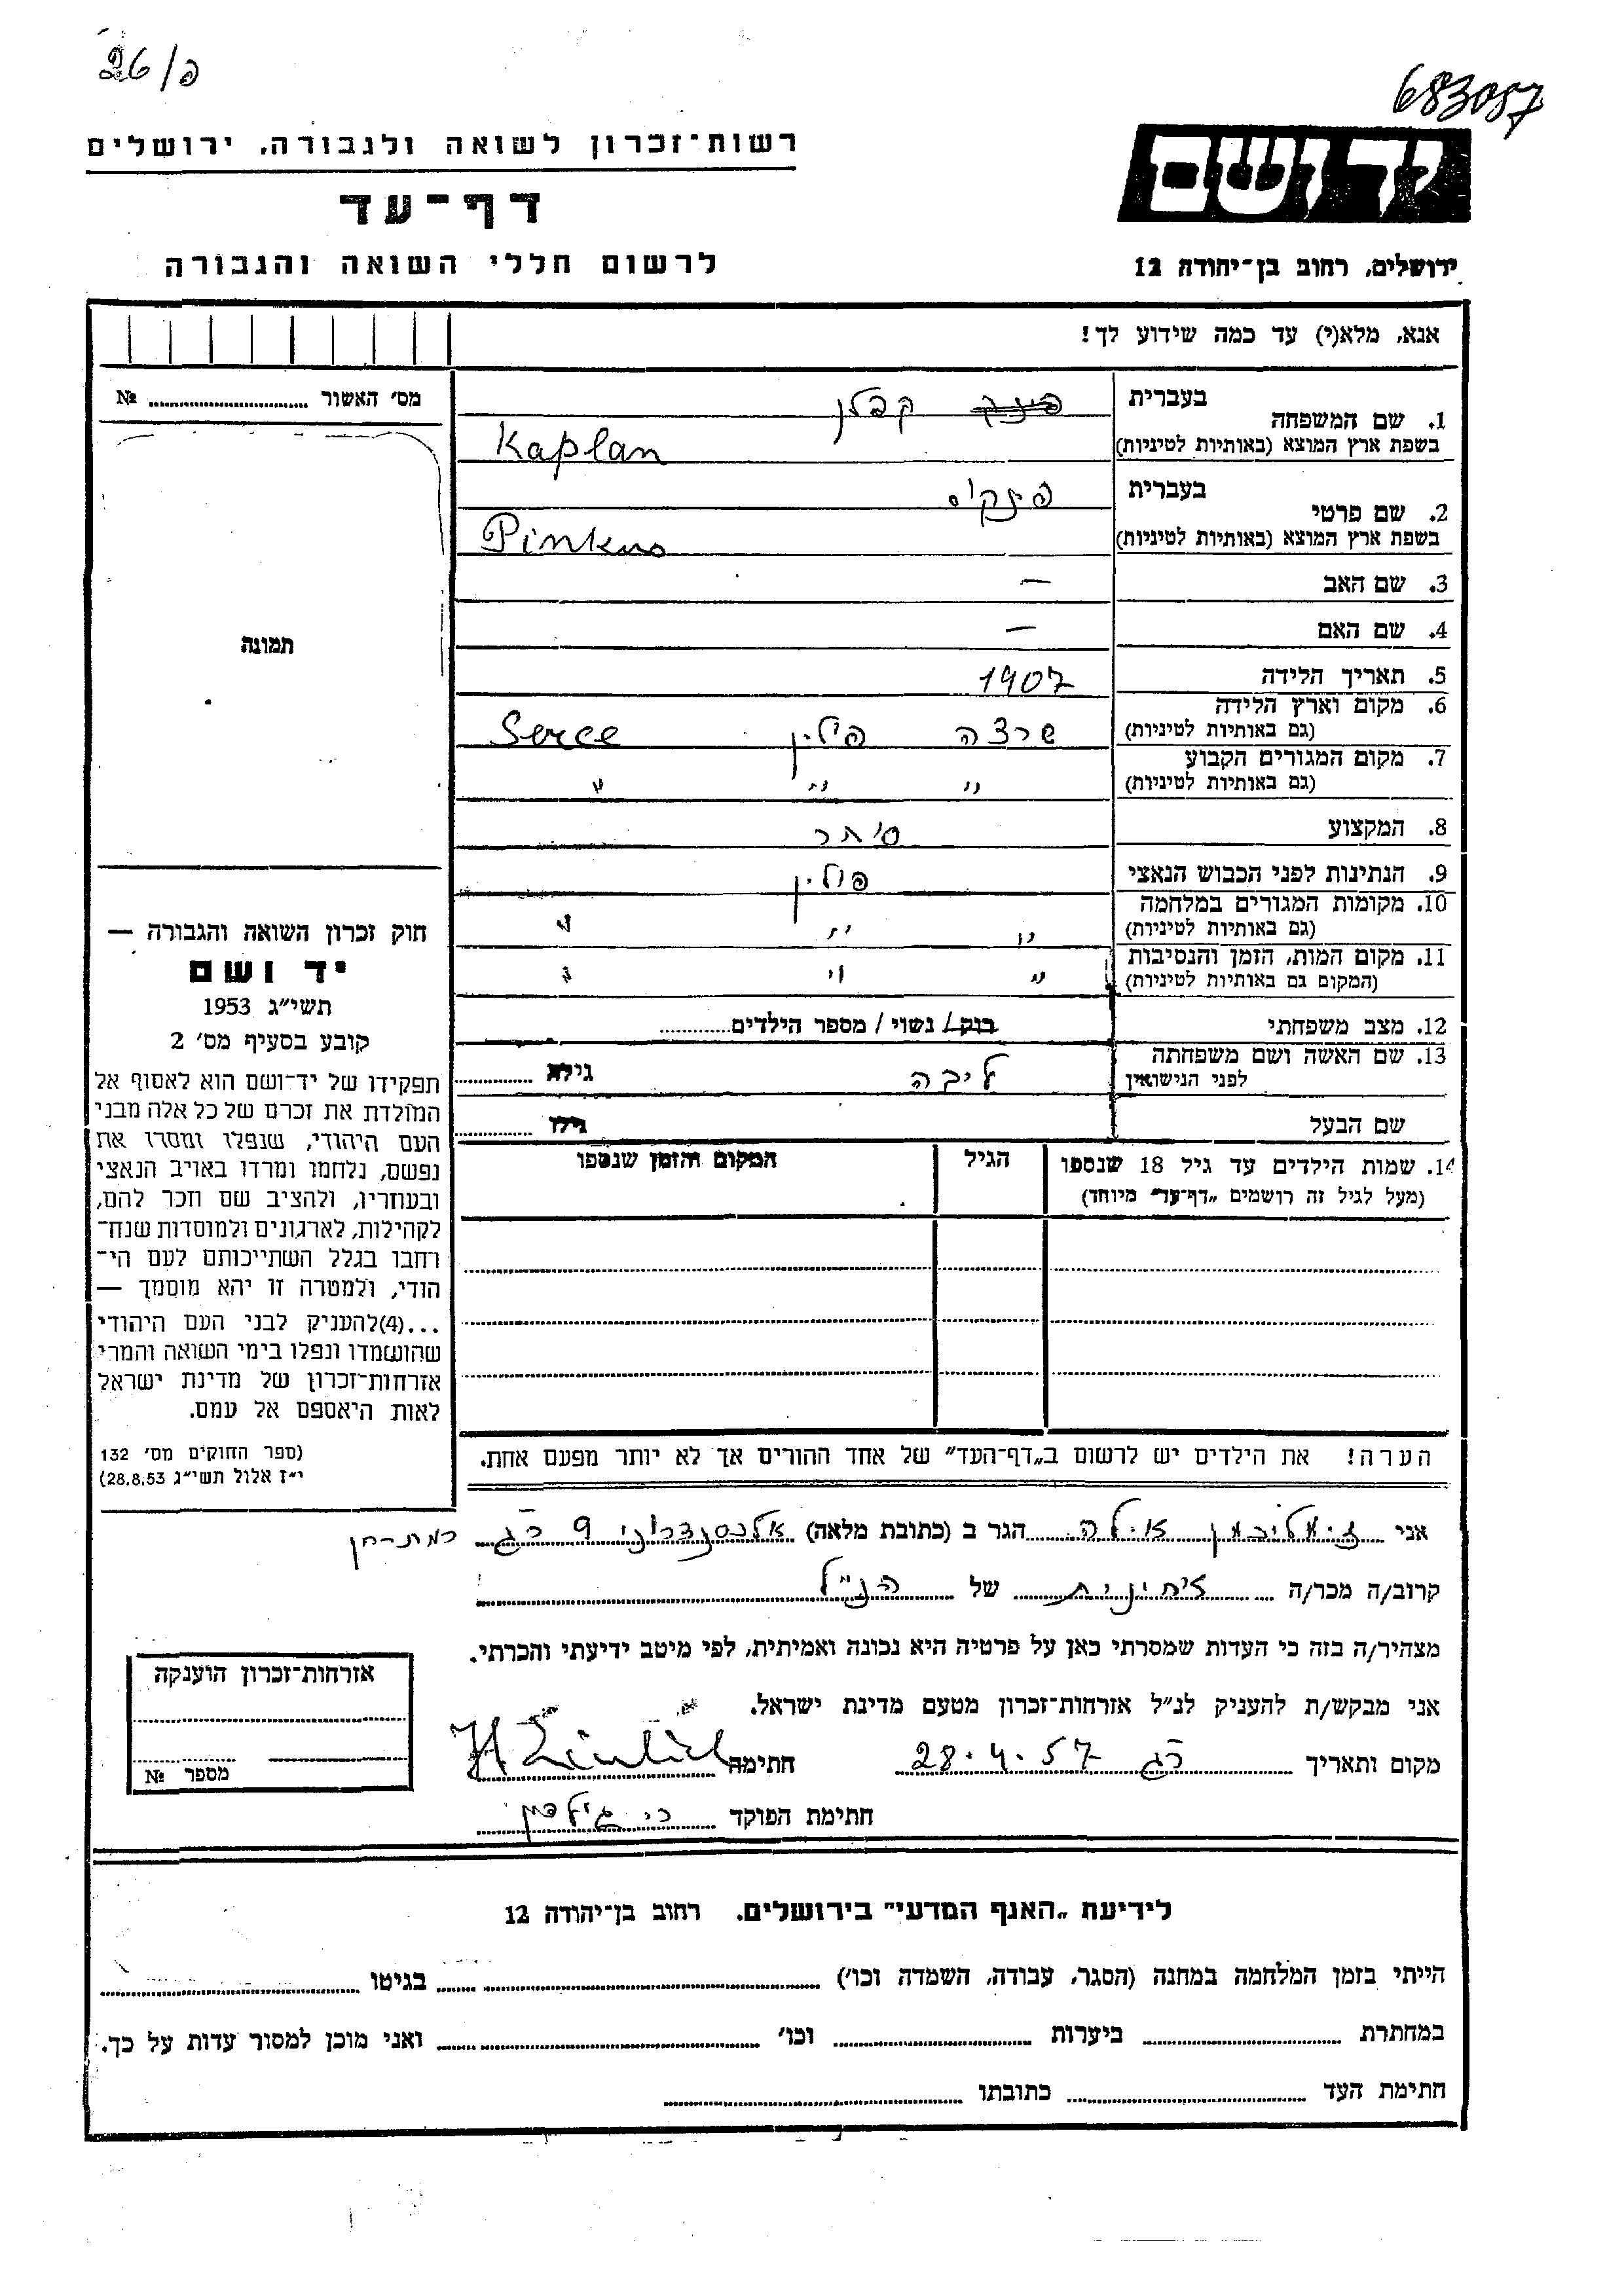 26/פ
683087
רשות-זכרון לשואה ולגבורה, ירושלים
יד ושם
דף-עד
לרשום חללי השואה והגבורה
ירושלים, רחוב בן-יהודה 12
אנא, מלא(י) עד כמה שידוע לך!
מס׳ האשור № ..........
1. שם המשפחה
בעברית
קפלן
בשפת ארץ המוצא (באותיות לטיניות)
Kaplan
2. שם פרטי
בעברית
פינקוס
בשפת ארץ המוצא (באותיות לטיניות)
Pinkus
3. שם האב —
4. שם האם —
5. תאריך הלידה 1907
6. מקום וארץ הלידה
(גם באותיות לטיניות)
שרצה פולין Serce
7. מקום המגורים הקבוע
(גם באותיות לטיניות)
״ ״ ״
8. המקצוע סוחר
9. הנתינות לפני הכבוש הנאצי פולין
10. מקומות המגורים במלחמה
(גם באותיות לטיניות)
״ ״ ״
11. מקום המות, הזמן והנסיבות
(המקום גם באותיות לטיניות)
״ ״ ״
12. מצב משפחתי רווק / נשוי / מספר הילדים..........
13. שם האשה ושם משפחתה
לפני הנישואין
ליבה גילה ..........
שם הבעל גילו ..........
14. שמות הילדים עד גיל 18 שנספו
(מעל לגיל זה רושמים „דף-עד״ מיוחד)
הגיל
המקום והזמן שנספו
תמונה
חוק זכרון השואה והגבורה —
יד ושם
תשי״ג 1953
קובע בסעיף מס׳ 2
תפקידו של יד-ושם הוא לאסוף אל
המולדת את זכרם של כל אלה מבני
העם היהודי, שנפלו ומסרו את
נפשם, נלחמו ומרדו באויב הנאצי
ובעוזריו, ולהציב שם וזכר להם,
לקהילות, לארגונים ולמוסדות שנח-
רחבו בגלל השתייכותם לעם הי-
הודי, ולמטרה זו יהא מוסמך —
...(4)להעניק לבני העם היהודי
שהושמדו ונפלו בימי השואה והמרי
אזרחות-זכרון של מדינת ישראל
לאות היאספם אל עמם.
(ספר החוקים מס׳ 132
י״ז אלול תשי״ג 28.8.53)
הערה! את הילדים יש לרשום ב„דף-העד״ של אחד ההורים אך לא יותר מפעם אחת.
אני הגר ב (כתובת מלאה) 9 רג רמת-חן
קרוב/ה מכר/ה של הנ״ל
מצהיר/ה בזה כי העדות שמסרתי כאן על פרטיה היא נכונה ואמיתית, לפי מיטב ידיעתי והכרתי.
אני מבקש/ת להעניק לנ״ל אזרחות-זכרון מטעם מדינת ישראל.
מקום ותאריך רג 28.4.57 חתימה
חתימת הפוקד
אזרחות-זכרון הוענקה
מספר №
לידיעת „האגף המדעי״ בירושלים. רחוב בן-יהודה 12
הייתי בזמן המלחמה במחנה (הסגר, עבודה, השמדה וכו׳) .......... בגיטו ..........
במחתרת .......... ביערות .......... וכו׳ .......... ואני מוכן למסור עדות על כך.
חתימת העד .......... כתובתו ..........